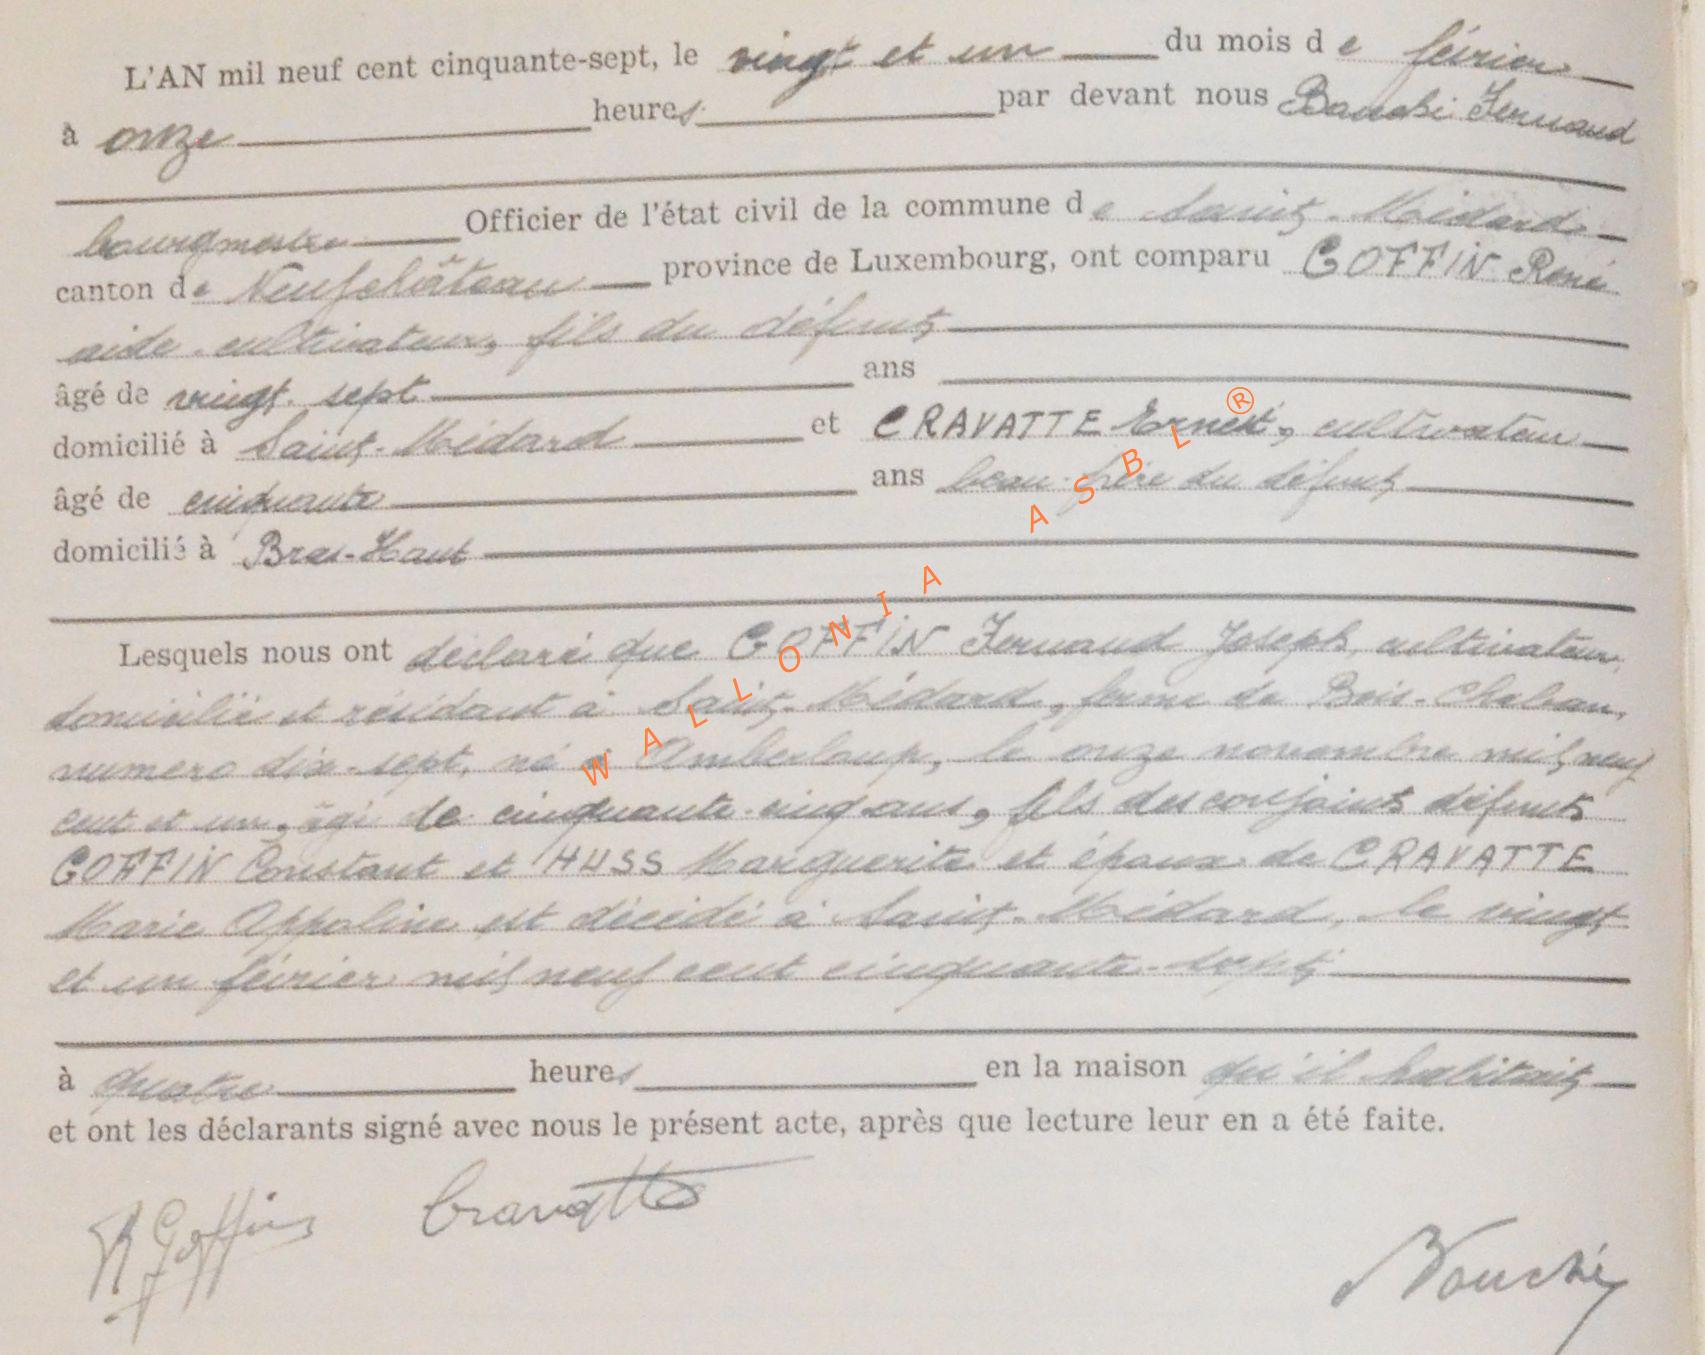 L'AN mil neuf cent cinquante-sept, le vingt et un du mois de février
à onze heures par devant nous Fernand
bourgmestre Officier de l'état civil de la commune de Saint-Médard
canton de Neufchâteau province de Luxembourg, ont comparu GOFFIN René
aide-cultivateur, fils du défunt
âgé de vingt-sept ans
domicilié à Saint-Médard et CRAVATTE Ernest, cultivateur
âgé de cinquante ans beau-frère du défunt
domicilié à Bras-Haut
Lesquels nous ont déclaré que GOFFIN Fernand Joseph, cultivateur
domicilié et résidant à Saint-Médard, ferme de Bois-
numéro dix-sept, né à Amberloup, le onze novembre mil neuf
cent et un, âgé de cinquante-cinq ans, fils des conjoints défunts
GOFFIN Constant et HUSS Marguerite et époux de CRAVATTE
Marie Appoline est décédé à Saint-Médard, le vingt
et un février mil neuf cent cinquante-sept
à quatre heures en la maison qu'il habitait
et ont les déclarants signé avec nous le présent acte, après que lecture leur en a été faite.
R Goffin Cravatte
WALLONIA ASBL ®